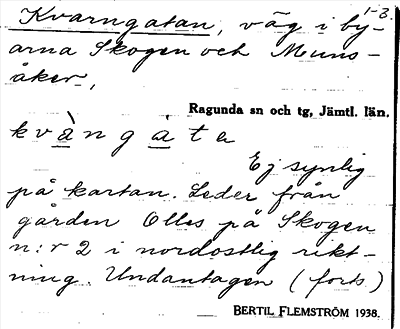 1-3.
Kvarngatan, väg i by-
arna Skogen och Muns-
åker,
Ragunda sn och tg, Jämtl. län.
kvàngáta
Ej synlig
på kartan. Leder från
gården Olles på Skogen
n:r 2 i nordostlig rikt-
ning. Undantagen (forts.)
BERTIL FLEMSTRÖM 1938.